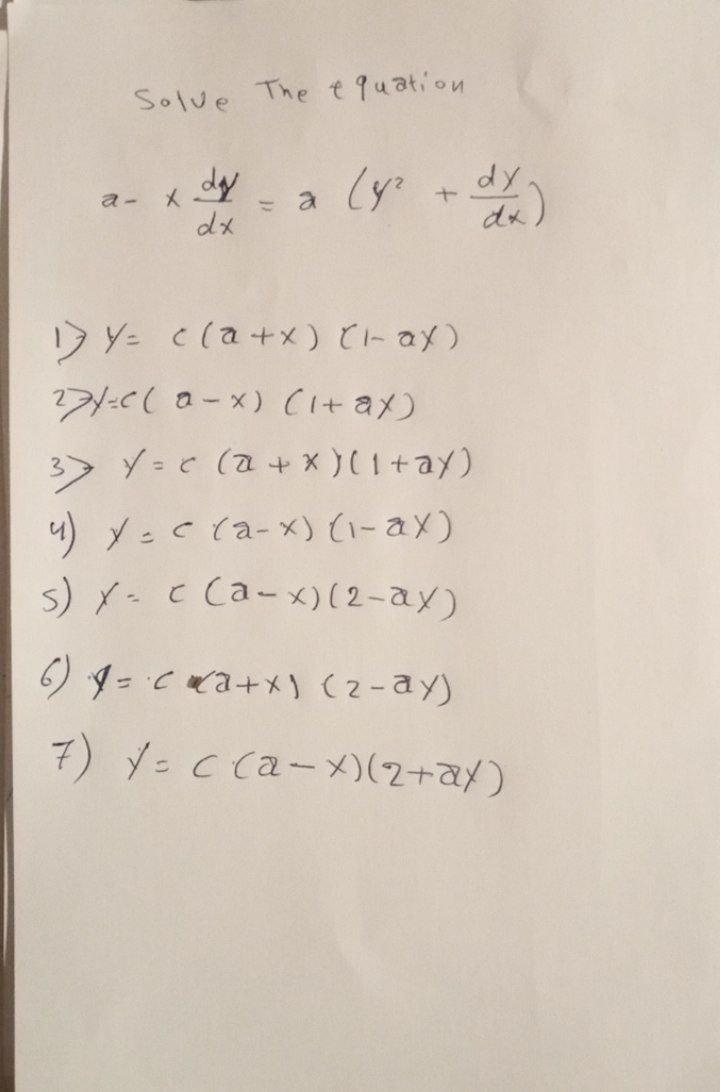 Solve The equation
a - x dy/dx = a (y² + dy/dx)
1) y = c(a+x)(1-ay)
2) y=c(a-x)(1+ay)
3) y=c(a+x)(1+ay)
4) y=c(a-x)(1-ay)
5) y=c(a-x)(2-ay)
6) y=c(a+x)(2-ay)
7) y=c(a-x)(2+ay)